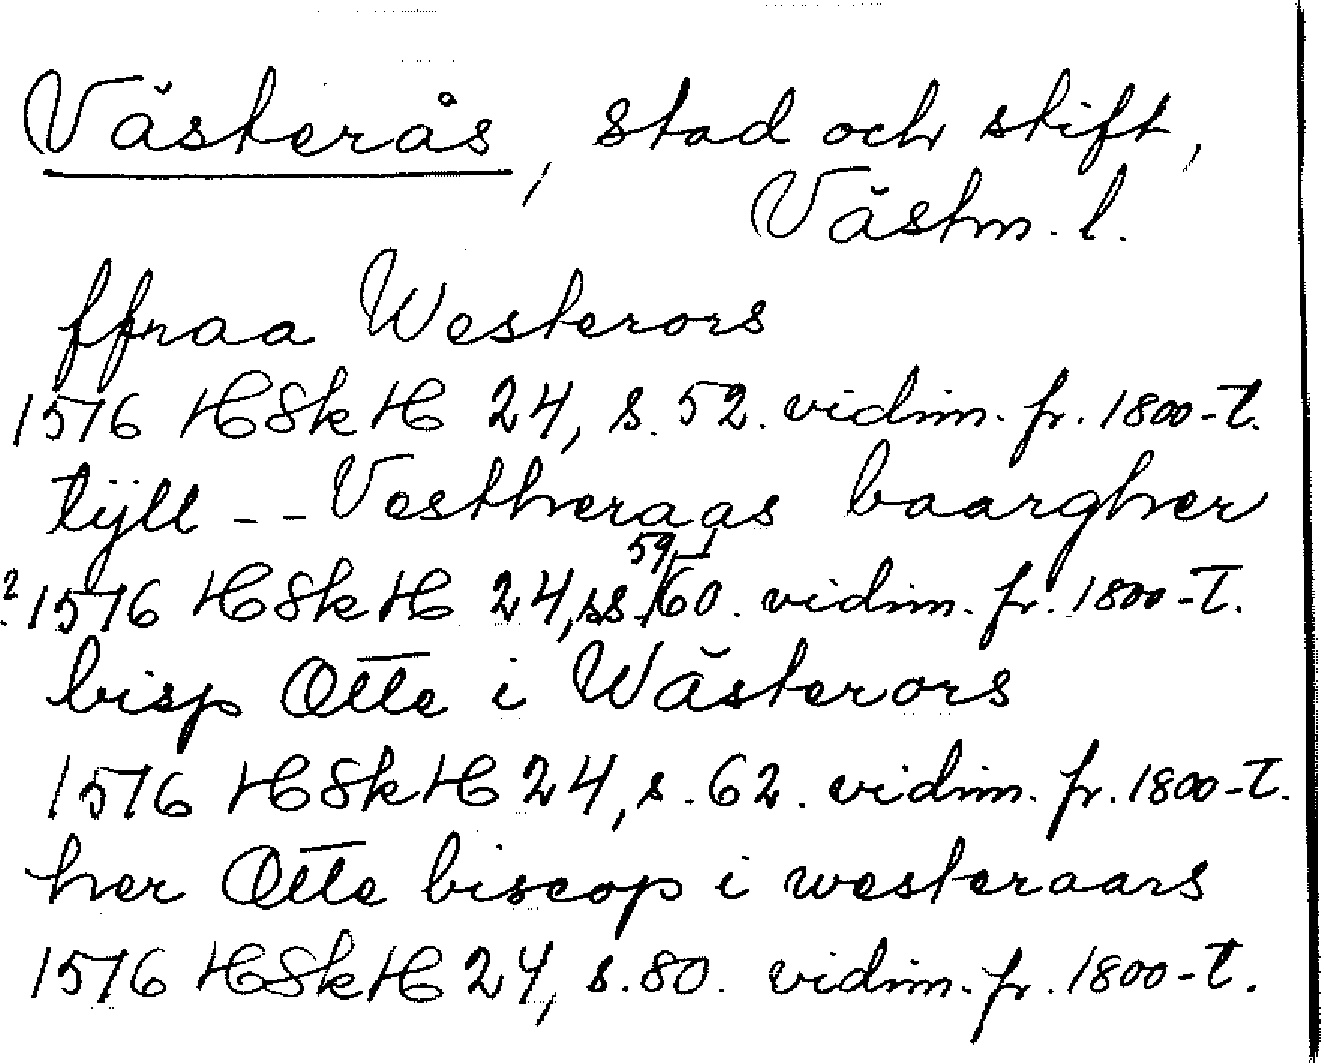 Västerås, stad och stift,
Västm. l.
ffraa Westerors
1516 HSkH 24, s. 52. vidim. fr. 1800-t.
tijll -- Vestheraas baargher
59
? 1516 HSkH 24, ss. /60. vidim. fr. 1800-t.
bisp Otte i Wästerors
1516 HSkH 24, s. 62. vidim. fr. 1800-t.
her Otte biscop i westeraars
1516 HSkH 24, s. 80. vidim. fr. 1800-t.